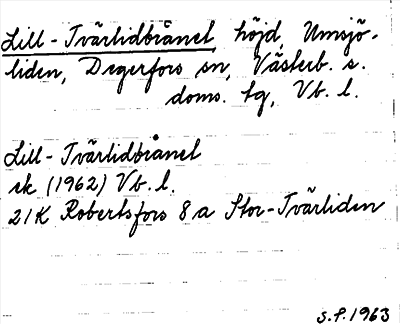 Lill-Tvärlidbrånet, höjd, Umsjö-
liden, Degerfors sn, Västerb. s.
doms. tg, Vb. l.
Lill-Tvärlidbrånet
ek (1962) Vb. l.
21K Robertsfors 8a Stor-Tvärliden
S.P. 1963